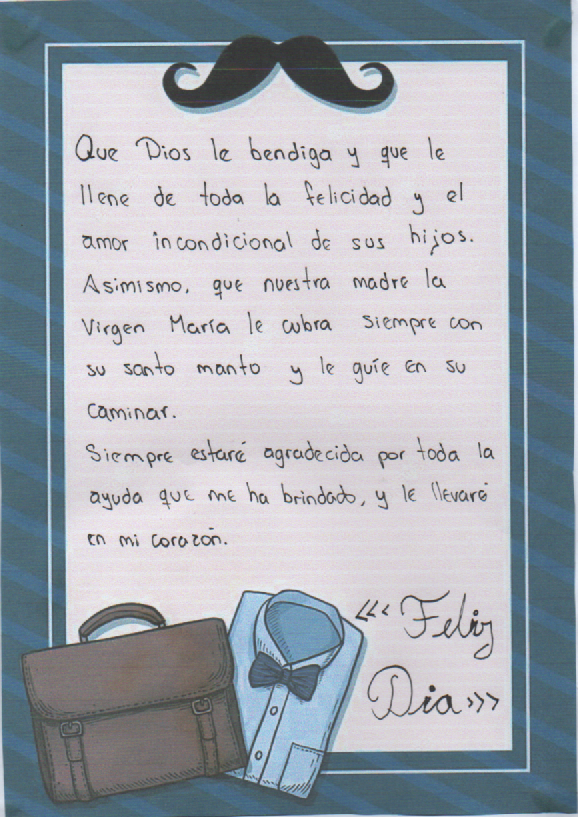 Que Dios le bendiga y que le
llene de toda la felicidad y el
amor incondicional de sus hijos.
Asimismo, que nuestra madre la
Virgen María le cubra siempre con
su santo manto y le guíe en su
caminar.
Siempre estaré agradecida por toda la
ayuda que me ha brindado, y le llevaré
en mi corazón.
<<< Feliz
Dia >>>